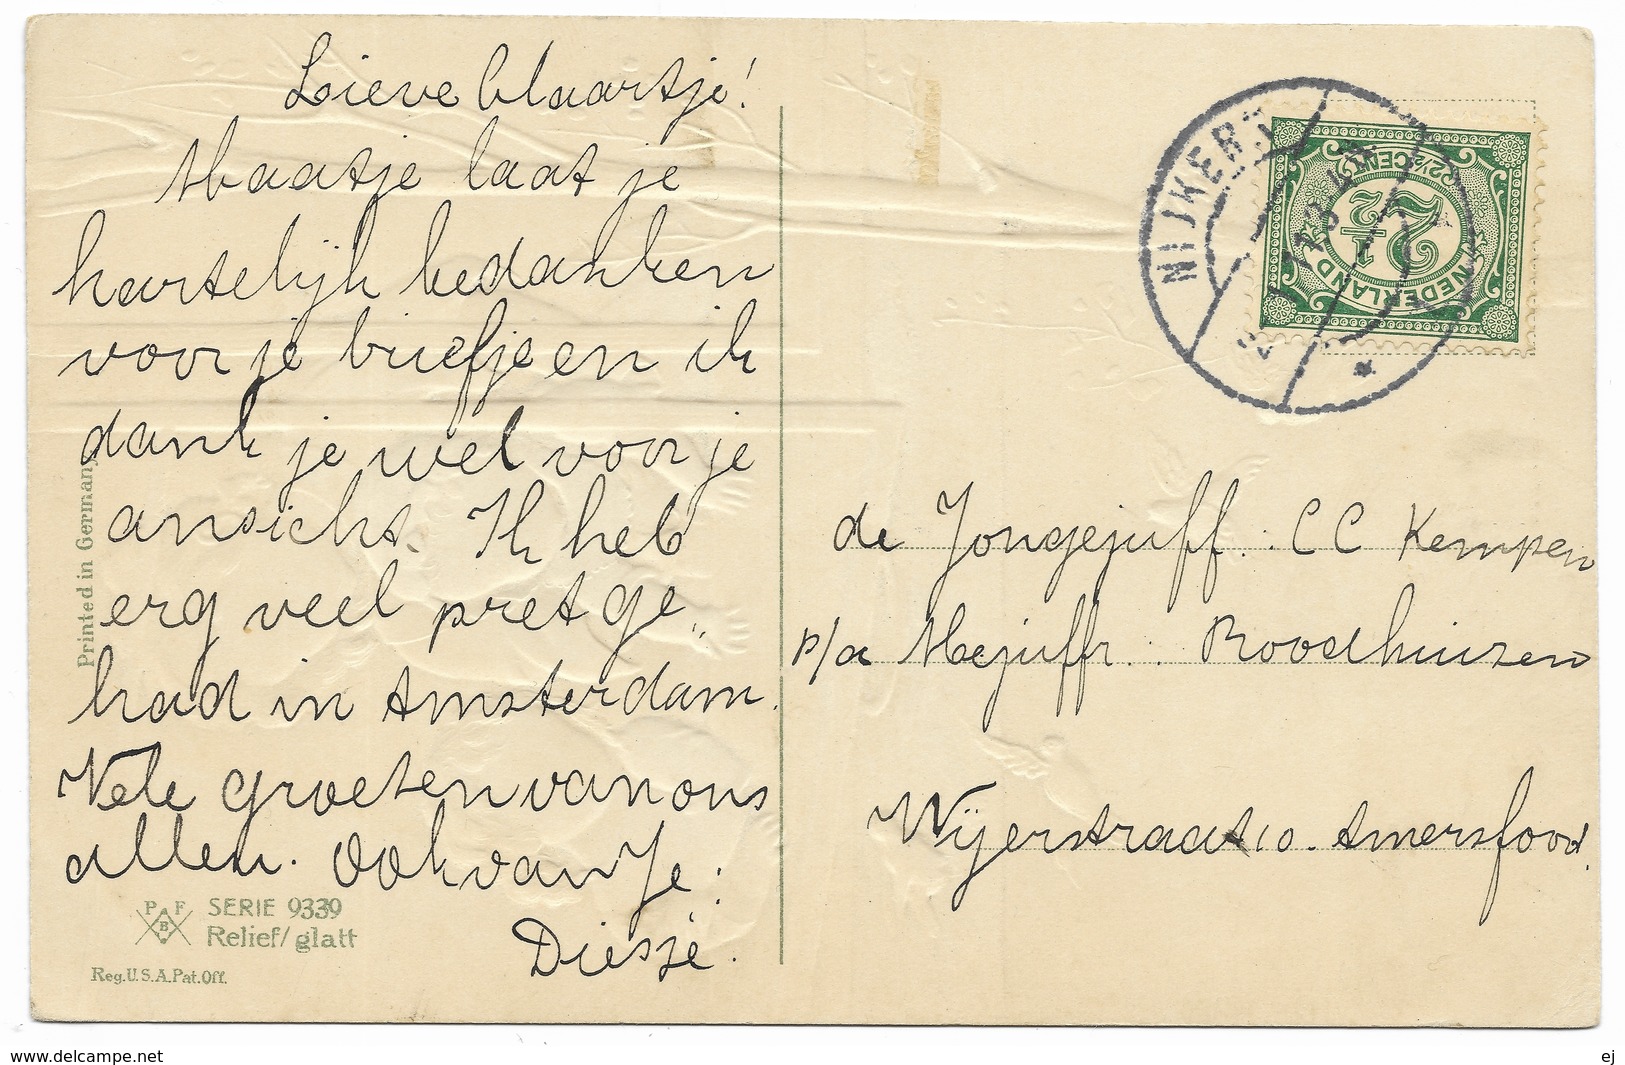 Lieve Claartje!
Maatje laat je
hartelijk bedanken
voor je briefje en ik
dank je wel voor je
ansicht. Ik heb
erg veel pret ge„
had in Amsterdam.
Vele groeten van ons
allen. Ook van Je:
Diesje.
Printed in Germany
P F
B
SERIE 9339
Relief/glatt
Reg.U.S.A.Pat.Off.
NIJKERK
NEDERLAND
2½
2½ CENT
de Jongejuff. C C Kempen
p/a Mejuffr. Roodhuizen
Wijerstraat 10. Amersfoord.
www.delcampe.net
ej